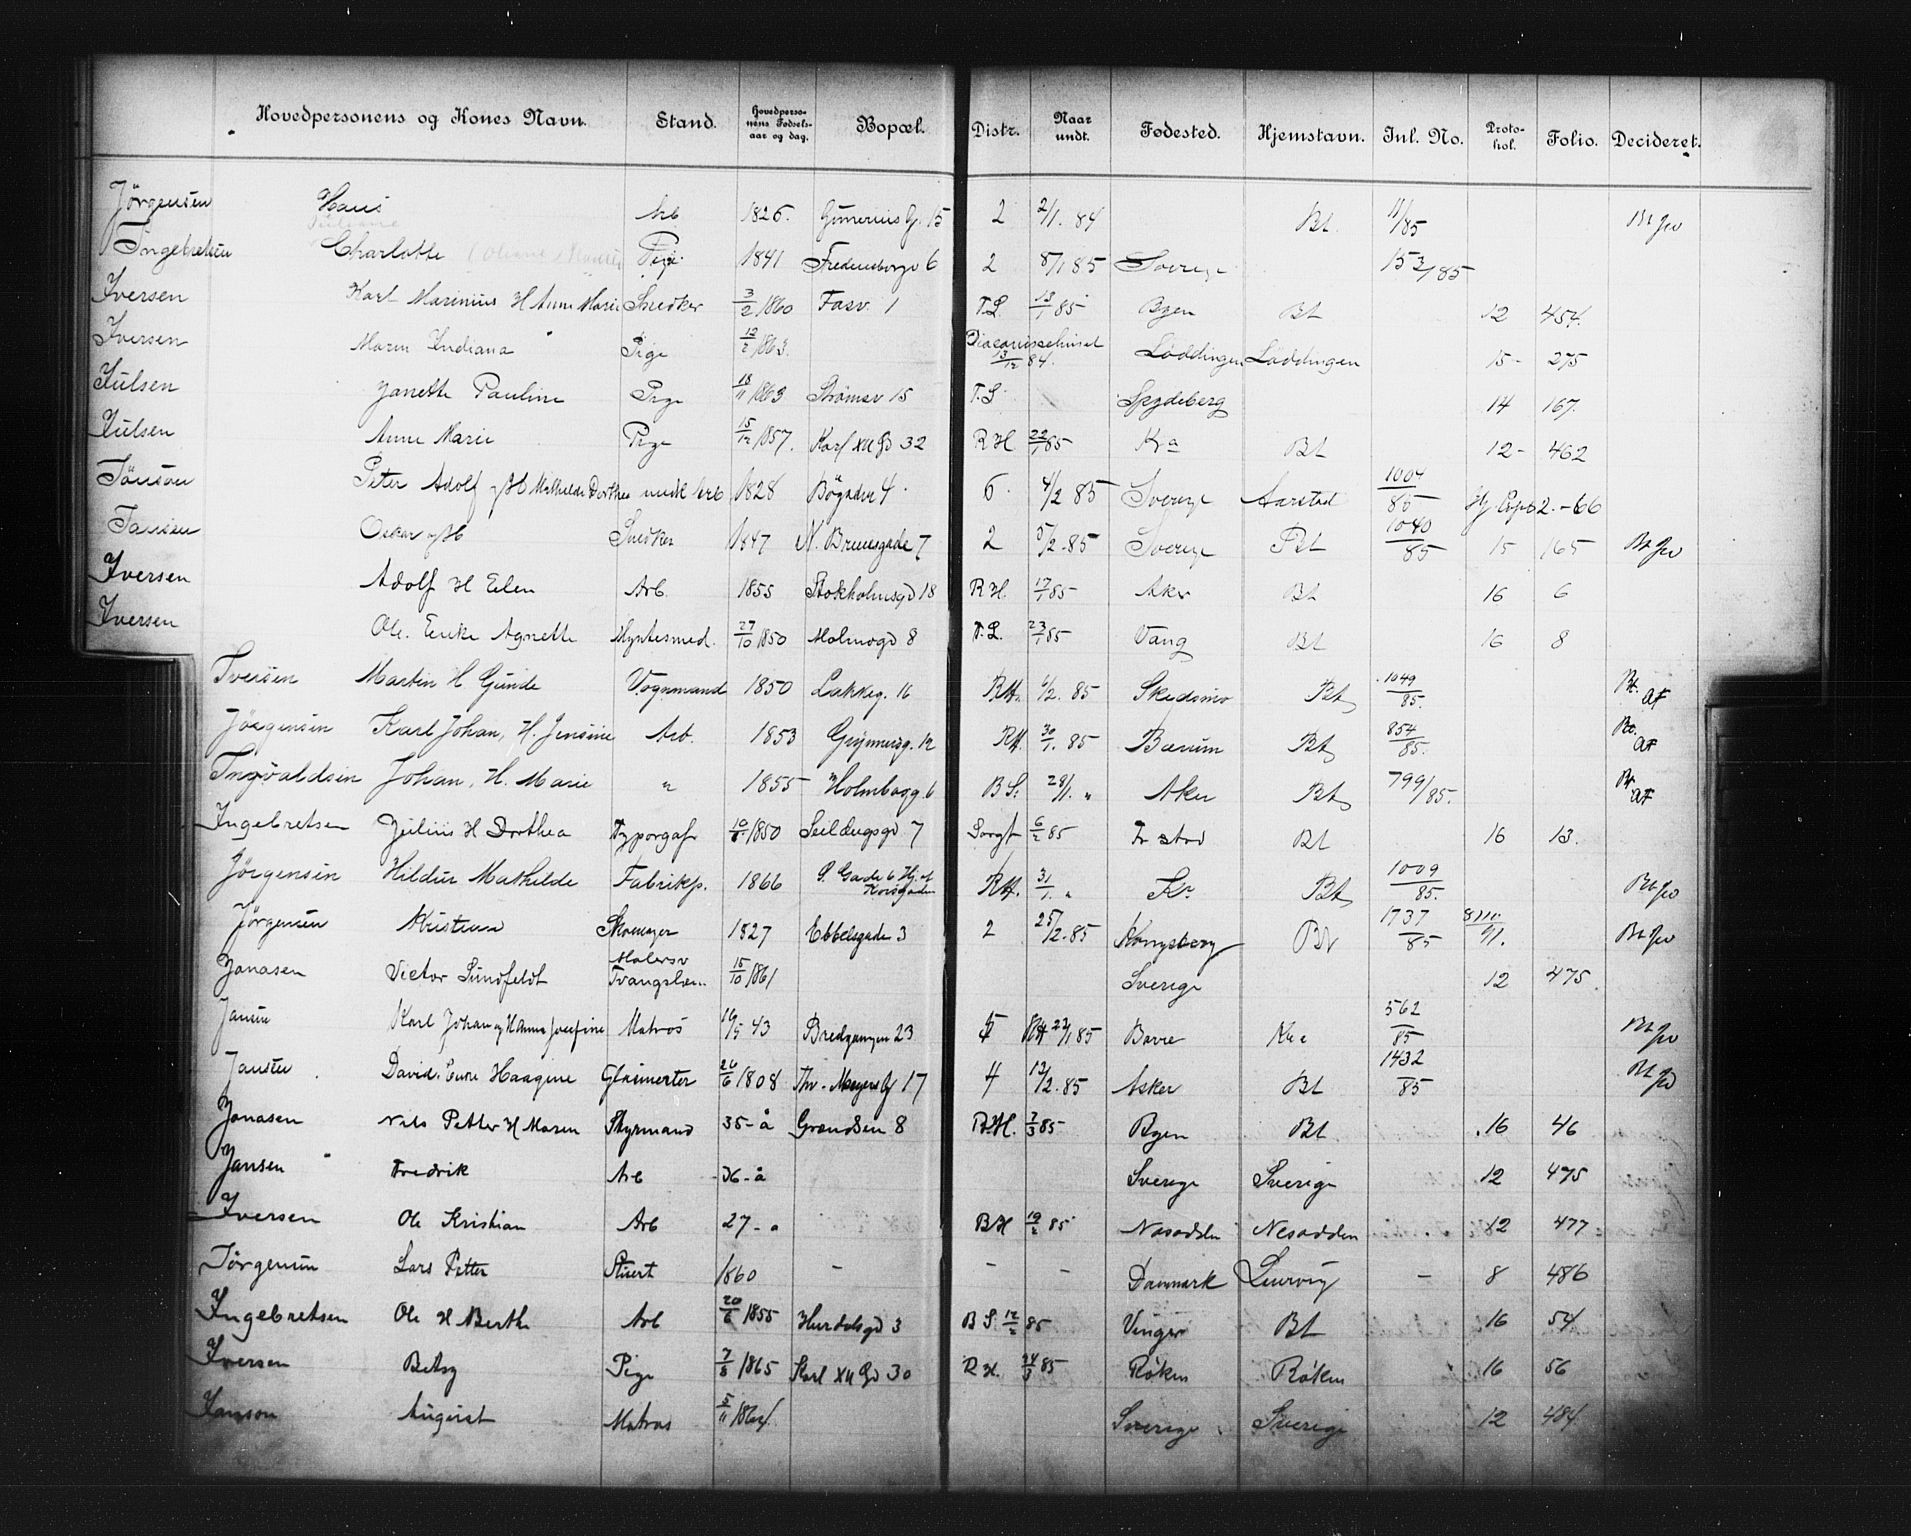 Hovedpersonens og Kones Navn. Stand. Hovedpersonens Fødselsaar og dag. Bopæl. Distr. Naar undt. Fødested. Hjemstavn. Inl. No. Protokol. Folio. Decideret.
Jørgensen Hans Arb 1826. Gunerius G. 15 2 2/1. 84 Bt. 11/85
Ingebretsen Charlotte Pige 1841 Fredensborgv 6 2 8/1 85 Sverige 153/85
Iversen Karl Marinius H Anne Marie Snedker 3/2 1860 Fasv. 1 T.L. 13/1 85 Byen Bt 12 454.
Iversen Maren Indiana Pige 12/2 1863. Diaconissehuset 13/12 84. Løddingen Løddingen 15- 275
Julsen Janette Pauline Pige 18/11 1863 Strømsv 15 T.L Spydeberg 14 167.
Julsen Anne Marie Pige 15/12 1857. Karl XII Gd 32 R.H 22/1 85 Kra Bt 12- 462
Jönson Peter Adolf og H Mathilde Dorthea Arb 1828 Bøgaden 4 6. 4/2 85 Sverige Aarstad 1004/85 2.-66
Jansen Oskar og H Snedker 1847 N. Brunsgade 7 2 5/2.85 Sverige Bt 1040/85 15 165
Iversen Adolf H Elen Arb. 1855 Stokholmsgd 18 R.H. 17/1 85 Aker Bt 16 6
Iversen Ole. Enke Agnette Myntesmed. 27/10 1850 Malmogd 8 T.L. 23/1 85 Vang Bt 16 8
Iversen Martin H. Gunde Vognmand 1850 Lakkeg. 16 RH. 6/2. 85 Skedsmo Bt 1049/85.
Jörgensen Karl Johan, H. Jensine Arb. 1853 Grünersg. 12 RH. 30/1. 85 Bærum Bt 854/85.
Ingvaldsen Johan, H. Marie " 1855 Holmbogg. 6 B.S. 28/1. " Aker Bt 799/85.
Ingebretsen Julius H Dorthea Typograf 10/6 1850 Seildugsgd 7 Sorgf 6/2 85 Fr stad Bt 16 13.
Jörgensen Hildur Mathilde Fabrikp. 1866 P. Gade 6 Hj. af Korsgaden RH. 31/1. " Kr. Bt 1009/85.
Jørgensen Kristian Skomager 1827 Ebbelsgade 3 2 25/2.85 Kongsberg Bt 1737/85
Janasen Victor Sundfeldt Malersv 15/10 1861 Sverige 12 475
Jansen Karl Johan og H Anna Josefine Matros 43 Bredgangen 23 5 22/1 85 Kra 562/85
Jansen David. Enke Haagine Glasmester 26/6 1808 Thv. Meyers G 17 4 12/2.85 Asker Bt 1432/85
Janasen Nils Petter H Maren Styrmand 35-å Grændsen 8 R.H. 7/3 85 Byen Bt 16 46
Jansen Fredrik Arb 36-å Sverige Sverige 12 475
Iversen Ole Kristian Arb 27-å B.H 19/2 85 Nesodden Nesodden 12 477
Jørgensen Lars Petter Stuert 1860 - - - Danmark Laurvig - 8 486
Ingebretsen Ole H Berthe Arb 20/6 1855 Hurdalsgd 3 B.S. 12/2 85 Vinger Bt 16 54
Iversen Betsy Pige 7/8 1865 Karl XII Gd 30 R.H. 24/3 85 Røken Røken 16 56
Janson August Matros 5/11 1864. Sverige Sverige 12 484